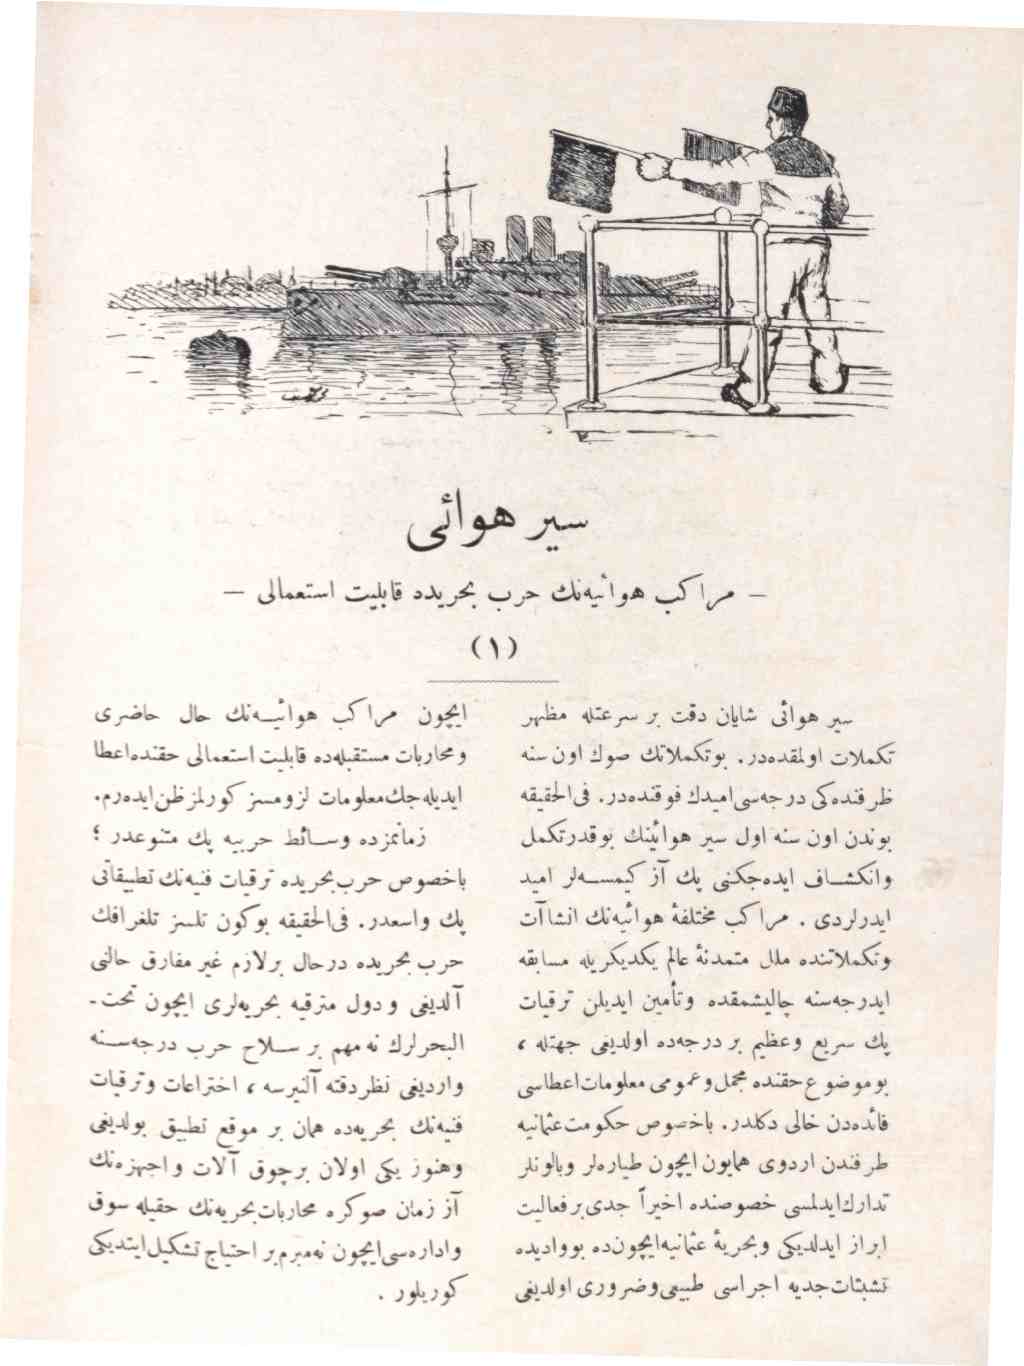 سیر هوائی
— مراکب هوائیه‌نك حرب بحریده قابلیت استعمالی —
(۱)
سیر هوائی شایان دقت بر سرعتله مظهر
تكملات اولمقده‌در. بوتكملاتك صوك اون سنه
ظرفنده‌كی درجه‌سی امیدك فوقنده‌در. فی‌الحقیقه
بوندن اون سنه اول سیر هوائینك بوقدر تكمل
وانكشاف ایده‌جكنی پك آز كیمسه‌لر امید
ایدرلردی . مراكب مختلفهٔ هوائیه‌نك انشاآت
وتكملاتنده ملل متمدنهٔ عالم یكدیكریله مسابقه
ایدرجه‌سنه چالیشمقده وتأمین ایدیلن ترقیات
پك سریع وعظیم بر درجه‌ده اولدیغی جهتله ،
بوموضوع حقنده مجمل وعمومی معلومات اعطاسی
فائده‌دن خالی دكلدر. باخصوص حكومت عثمانیه
طرفندن اردوی همایون ایچون طیاره‌لر وبالونلر
تدارك ایدلمسی خصوصنده اخیراً جدی بر فعالیت
ابراز ایدلدیكی وبحریهٔ عثمانیه ایچون‌ده بووادیده
تشبثات جدیه اجراسی طبیعی وضروری اولدیغی
ایچون مراكب هوائیه‌نك حال حاضری
ومحاربات مستقبله‌ده قابلیت استعمالی حقنده اعطا
ایدیله‌جك معلومات لزومسز كورلمز ظن ایده‌رم.
زمانمزده وسائط حربیه پك متنوعدر ؛
باخصوص حرب بحریده ترقیات فنیه‌نك تطبیقاتی
پك واسعدر. فی‌الحقیقه بوكون تلسز تلغرافك
حرب بحریده درحال بر لازم غیر مفارق حالنی
آلدیغی ودول مترقیه بحریه‌لری ایچون تحت-
البحرلرك نه مهم بر سلاح حرب درجه‌سنه
واردیغی نظر دقته آلنیرسه ، اختراعات وترقیات
فنیه‌نك بحریه‌ده همان بر موقع تطبیق بولدیغی
وهنوز یكی اولان برچوق آلات واجهزه‌نك
آز زمان صوكره محاربات بحریه‌نك حقیله سوق
واداره‌سی ایچون نه مبرم بر احتیاج تشكیل ایتدیكی
كوریلور .